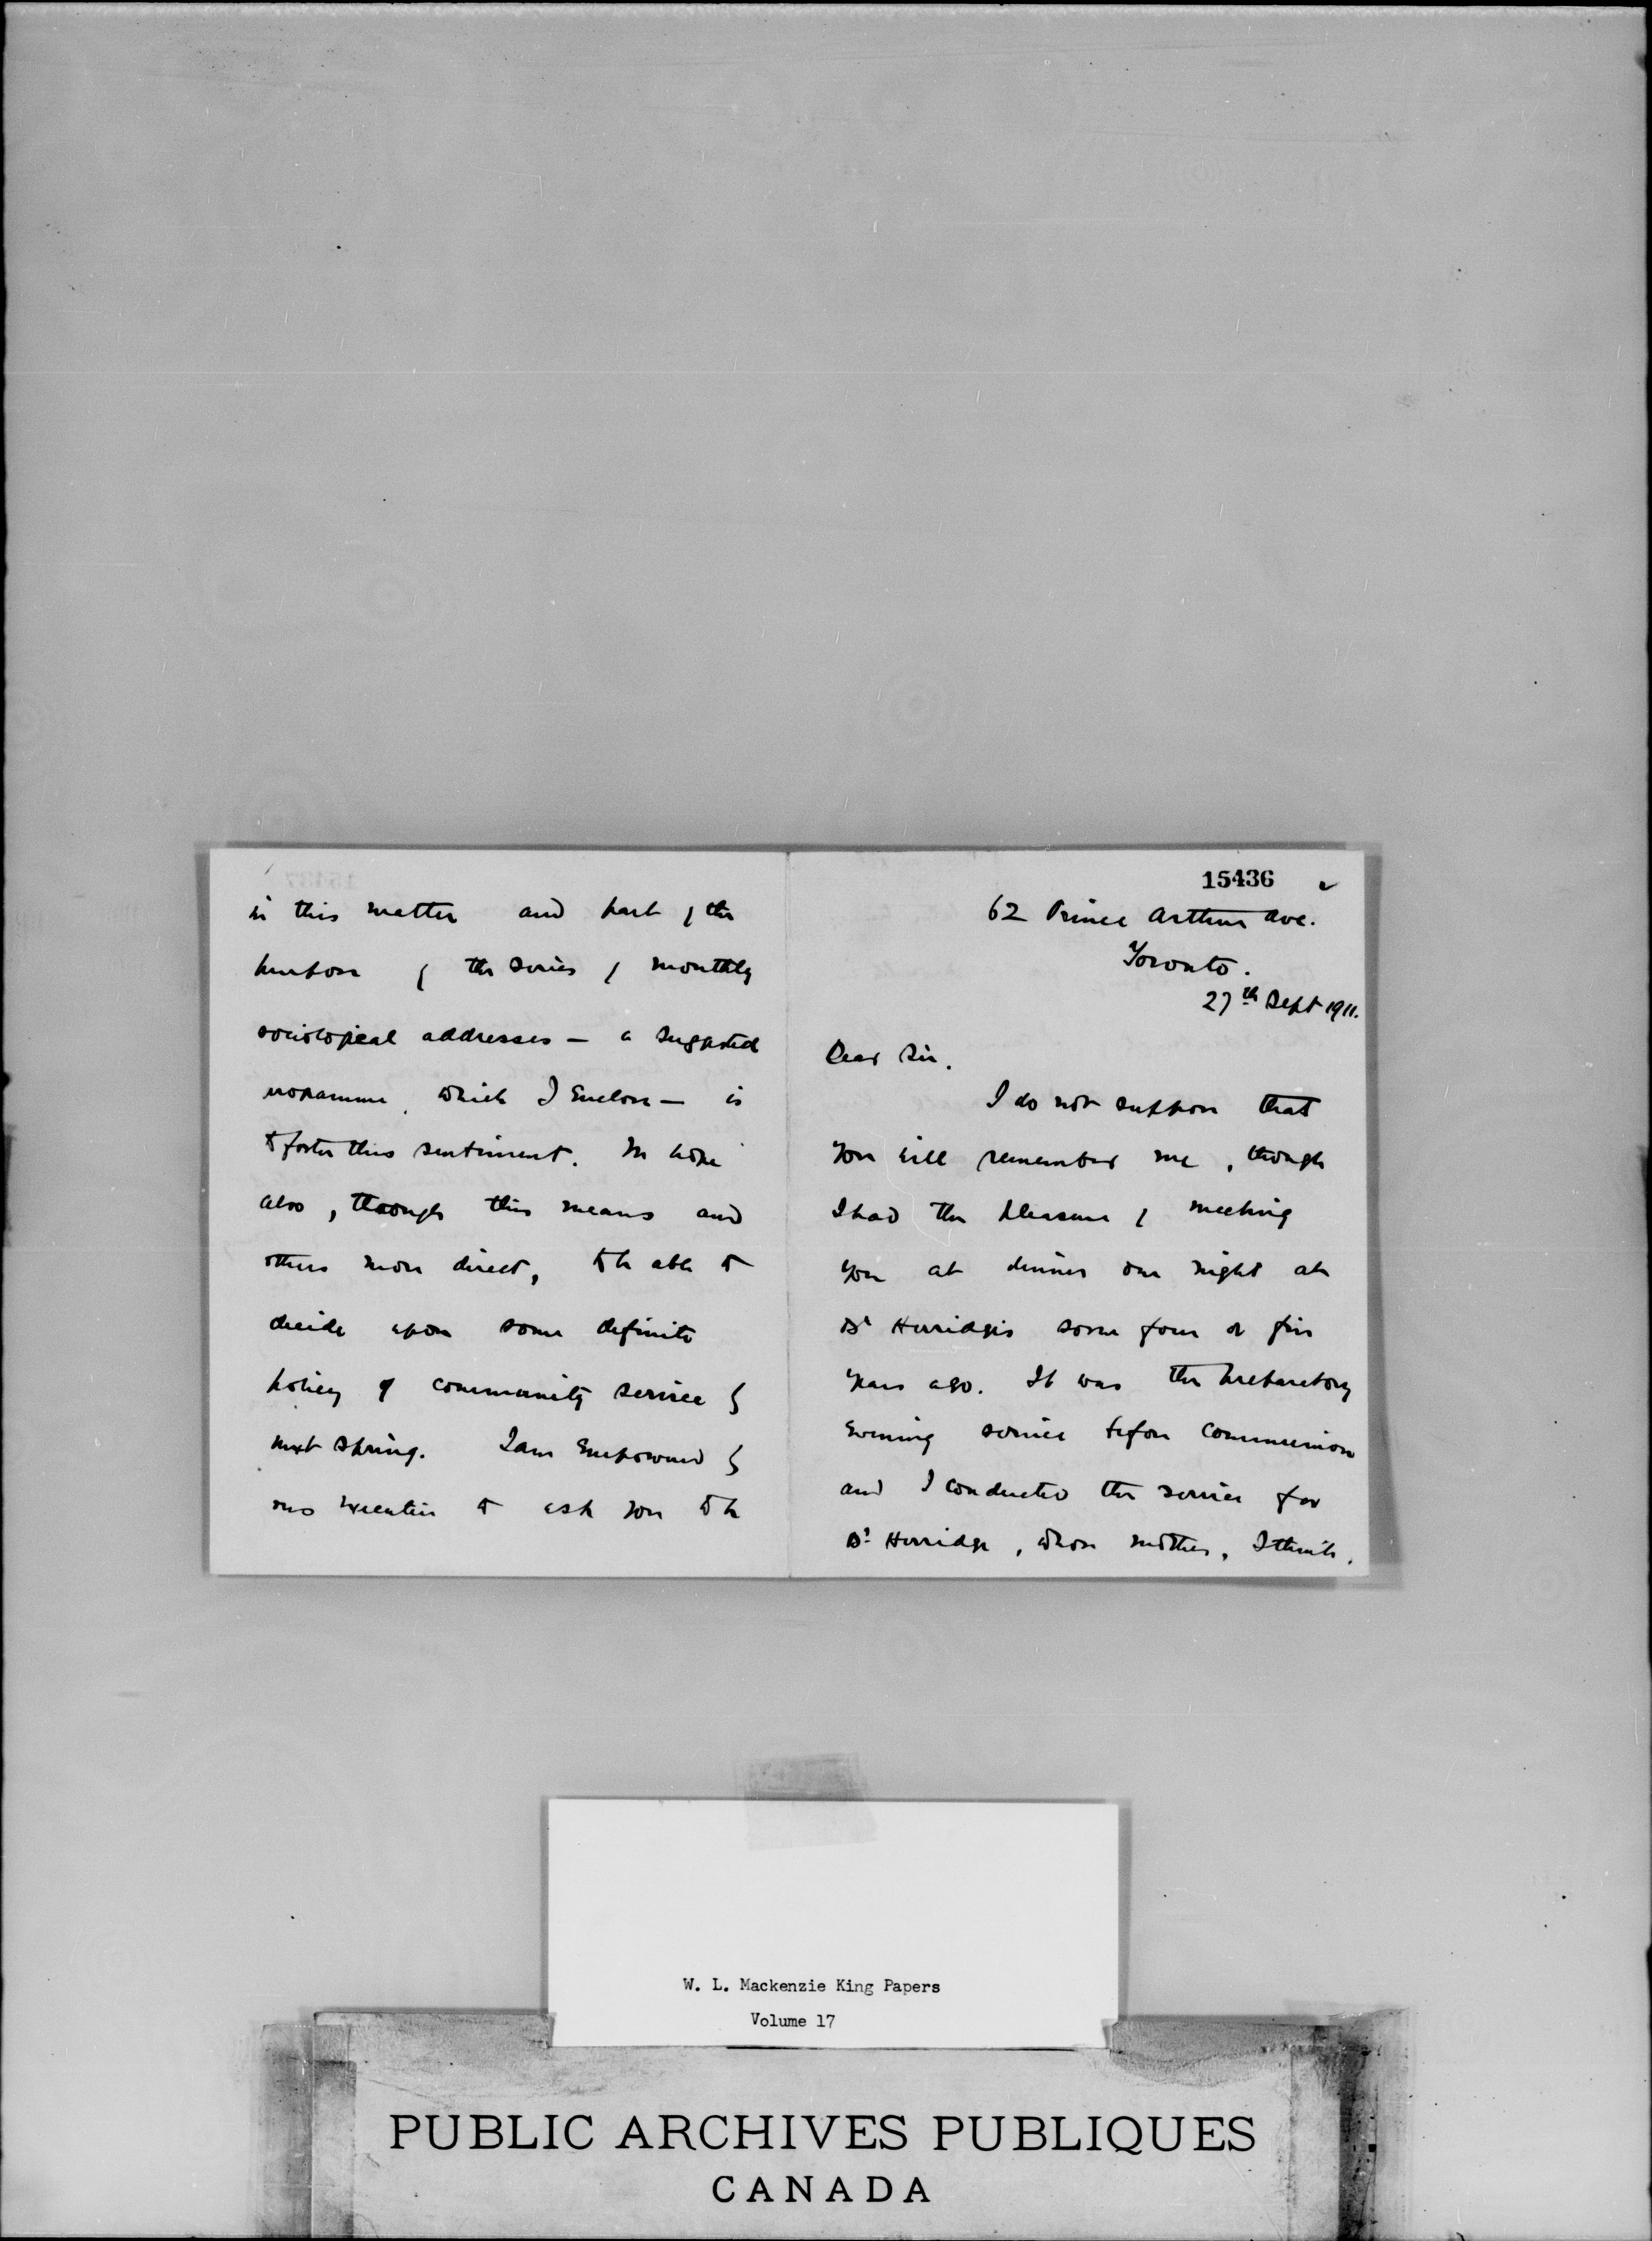 in this matter and part of the
purpose of the series of monthly
sociological addresses — a suggested
programme, which I enclose — is
to foster this sentiment. We hope
also, through this means and
others more direct, to be able to
decide upon some definite
policy of community service by
next spring. I am empowered by
our executive to ask you to be
15436
62 Prince Arthur Ave.
Toronto.
27th Sept 1911.
Dear Sir.
I do not suppose that
you will remember me, though
I had the pleasure of meeting
you at dinner one night at
Dr Herridge's some four or five
years ago. It was the preparatory
evening service before communion
and I conducted the service for
Dr. Herridge, whose mother, I think,
W. L. Mackenzie King Papers
Volume 17
PUBLIC ARCHIVES PUBLIQUES
CANADA